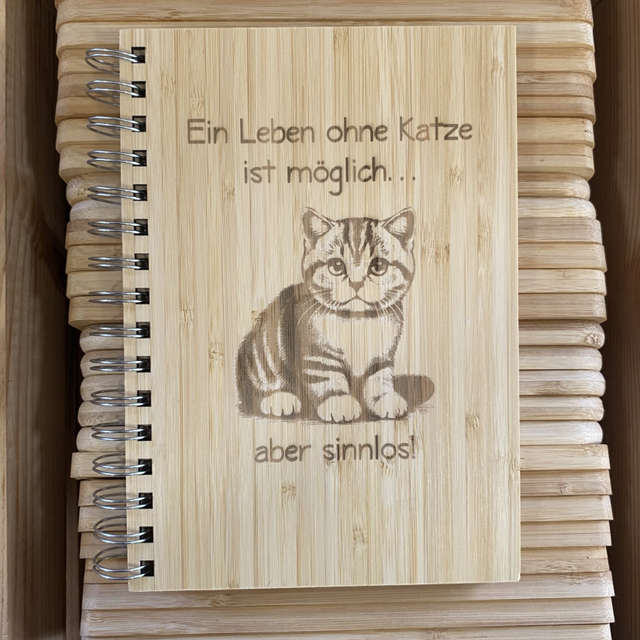 Ein Leben ohne Katze
ist möglich...
aber sinnlos!